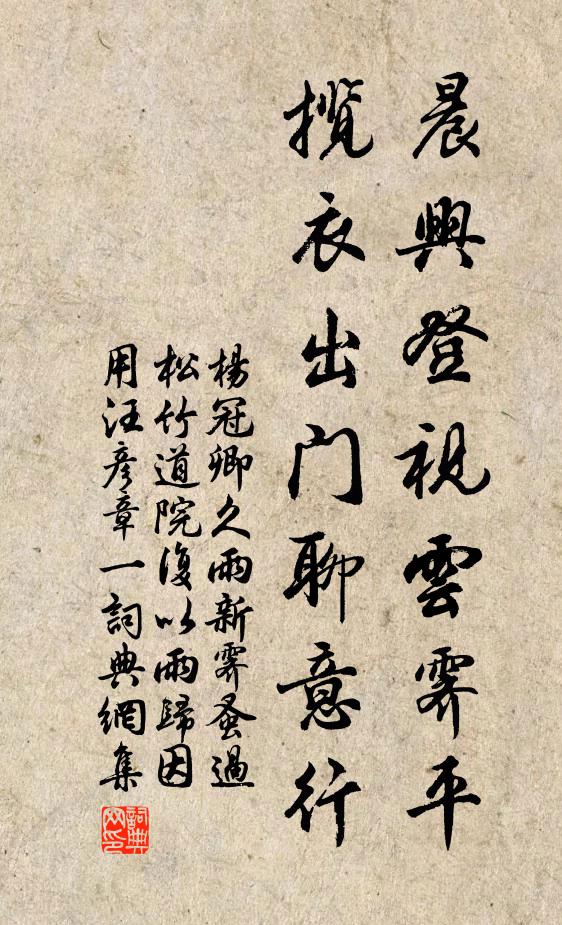 晨興登視雲霽平
攬衣出門聊意行
楊冠卿久雨新霽蚤過
松竹道院復以雨歸因
用汪彥章一詞典網集
詞典
网印